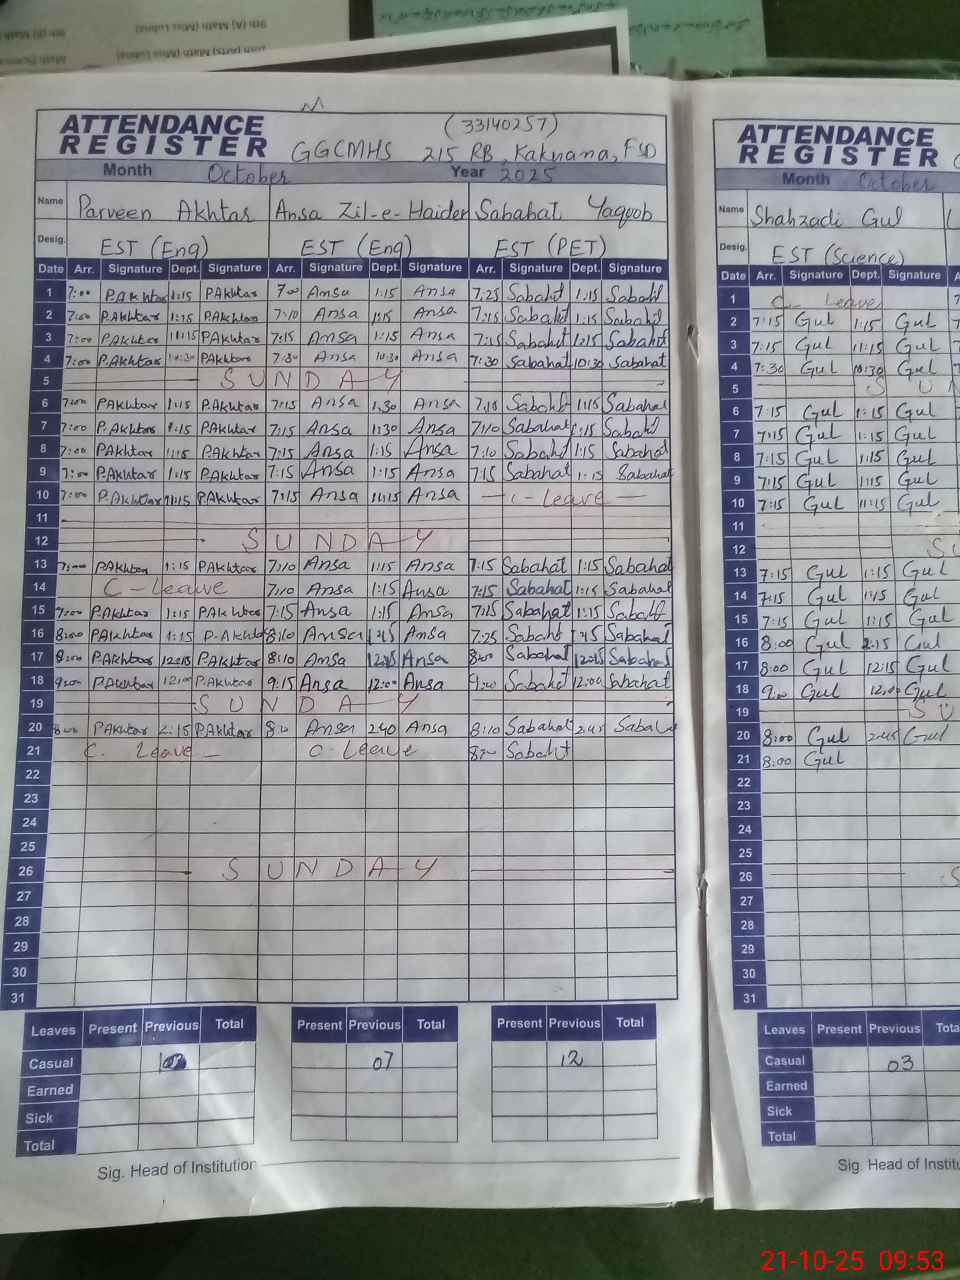 9th (A) Math (Miss Lubna)
ATTENDANCE
REGISTER
(33140257)
GGCMHS 215 RB, Kaknana, FSD
Month October Year 2025
Name Parveen Akhtar Ansa Zil-e-Haider Sabahat Yaqoob
Desig. EST (Eng) EST (Eng) EST (PET)
Date Arr. Signature Dept. Signature Arr. Signature Dept. Signature Arr. Signature Dept. Signature
1 7:00 PAkhtar 1:15 PAkhtar 7:00 Ansa 1:15 Ansa 7:25 Sabahat 1:15 Sabahat
2 7:00 P.Akhtar 1:15 P.Akhtar 7:10 Ansa 1:15 Ansa 7:15 Sabahat 1:15 Sabahat
3 7:00 P.Akhtar 11:15 PAkhtar 7:15 Ansa 1:15 Ansa 7:15 Sabahat Sabahat
4 7:00 P.Akhtar 10:30 PAkhtar 7:30 Ansa 10:30 Ansa 7:30 Sabahat 10:30 Sabahat
5 SUNDAY
6 7:00 PAkhtar 1:15 P.Akhtar 7:15 Ansa 1:30 Ansa 7:10 Sabahat 1:15 Sabahat
7 7:00 P.Akhtar 1:15 PAkhtar 7:15 Ansa 1:30 Ansa 7:10 Sabahat 1:15 Sabahat
8 7:00 PAkhtar 1:15 PAkhtar 7:15 Ansa 1:15 Ansa 7:10 Sabahat 1:15 Sabahat
9 7:00 PAkhtar 1:15 PAkhtar 7:15 Ansa 1:15 Ansa 7:15 Sabahat 1:15 Sabahat
10 7:00 P.Akhtar 11:15 PAkhtar 7:15 Ansa 11:15 Ansa C-leave
11
12 SUNDAY
13 7:00 PAkhtar 1:15 PAkhtar 7:10 Ansa 1:15 Ansa 7:15 Sabahat 1:15 Sabahat
14 C-Leave 7:10 Ansa 1:15 Ansa 7:15 Sabahat 1:15 Sabahat
15 7:00 P.Akhtar 1:15 PAkhtar 7:15 Ansa 1:15 Ansa 7:15 Sabahat 1:15 Sabahat
16 8:00 PAkhtar 1:15 P.Akhtar 8:10 Ansa Ansa 7:25 Sabahat Sabahat
17 8:00 P.Akhtar 12:15 P.Akhtar 8:10 Ansa 12:15 Ansa 8:00 Sabahat 12:15 Sabahat
18 9:00 PAkhtar 12:00 P.Akhtar 9:15 Ansa 12:00 Ansa 9:00 Sabahat 12:00 Sabahat
19 SUNDAY
20 8:00 PAkhtar 2:15 PAkhtar 8:10 Ansa 2:40 Ansa 8:10 Sabahat 2:45 Sabahat
21 C. Leave C. Leave Sabahat
22
23
24
25
26 SUNDAY
27
28
29
30
31
Leaves Present Previous Total Present Previous Total Present Previous Total
Casual 07 12
Earned
Sick
Total
Sig. Head of Institution
ATTENDANCE
REGISTER
Month October
Name Shahzadi Gul
Desig. EST (Science)
Date Arr. Signature Dept. Signature
1 C- Leave
2 7:15 Gul 1:15 Gul
3 7:15 Gul 11:15 Gul
4 7:30 Gul 10:30 Gul
5 SUN
6 7:15 Gul 1:15 Gul
7 7:15 Gul 1:15 Gul
8 7:15 Gul 1:15 Gul
9 7:15 Gul 1:15 Gul
10 7:15 Gul 11:15 Gul
11
12 SU
13 7:15 Gul 1:15 Gul
14 7:15 Gul 1:15 Gul
15 7:15 Gul 1:15 Gul
16 8:00 Gul 2:15 Gul
17 8:00 Gul 12:15 Gul
18 9:00 Gul 12:00 Gul
19 SU
20 8:00 Gul 2:45 Gul
21 8:00 Gul
22
23
24
25
26 S
27
28
29
30
31
Leaves Present Previous Tota
Casual 03
Earned
Sick
Total
Sig. Head of Institu
21-10-25 09:53